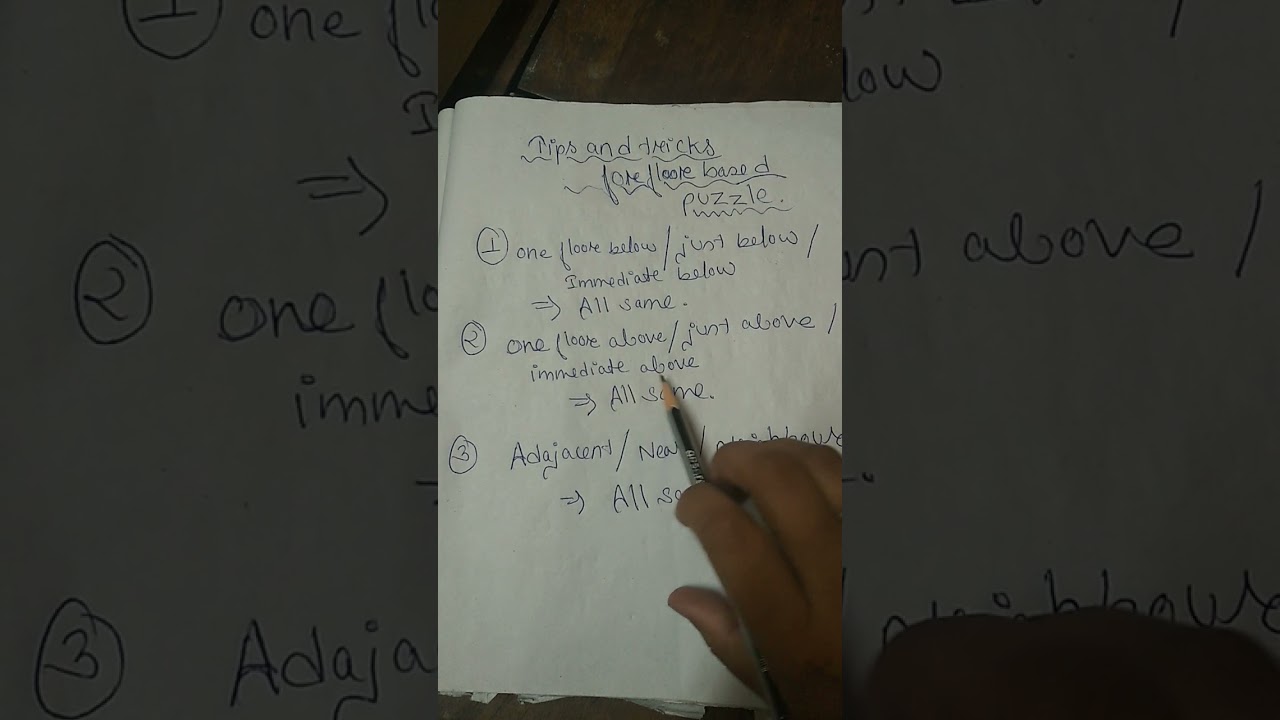 Tips and tricks
fore floore based
puzzle.
① one floore below / just below /
Immediate below
⇒ All same.
② one floore above / just above /
immediate above
⇒ All same.
③ Adajacent / Near /
⇒ All